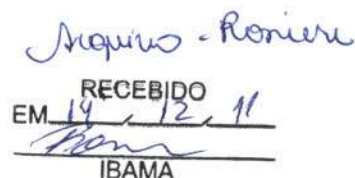 Arquivo - Ronieri
RECEBIDO
EM 14, 12, 11
IBAMA